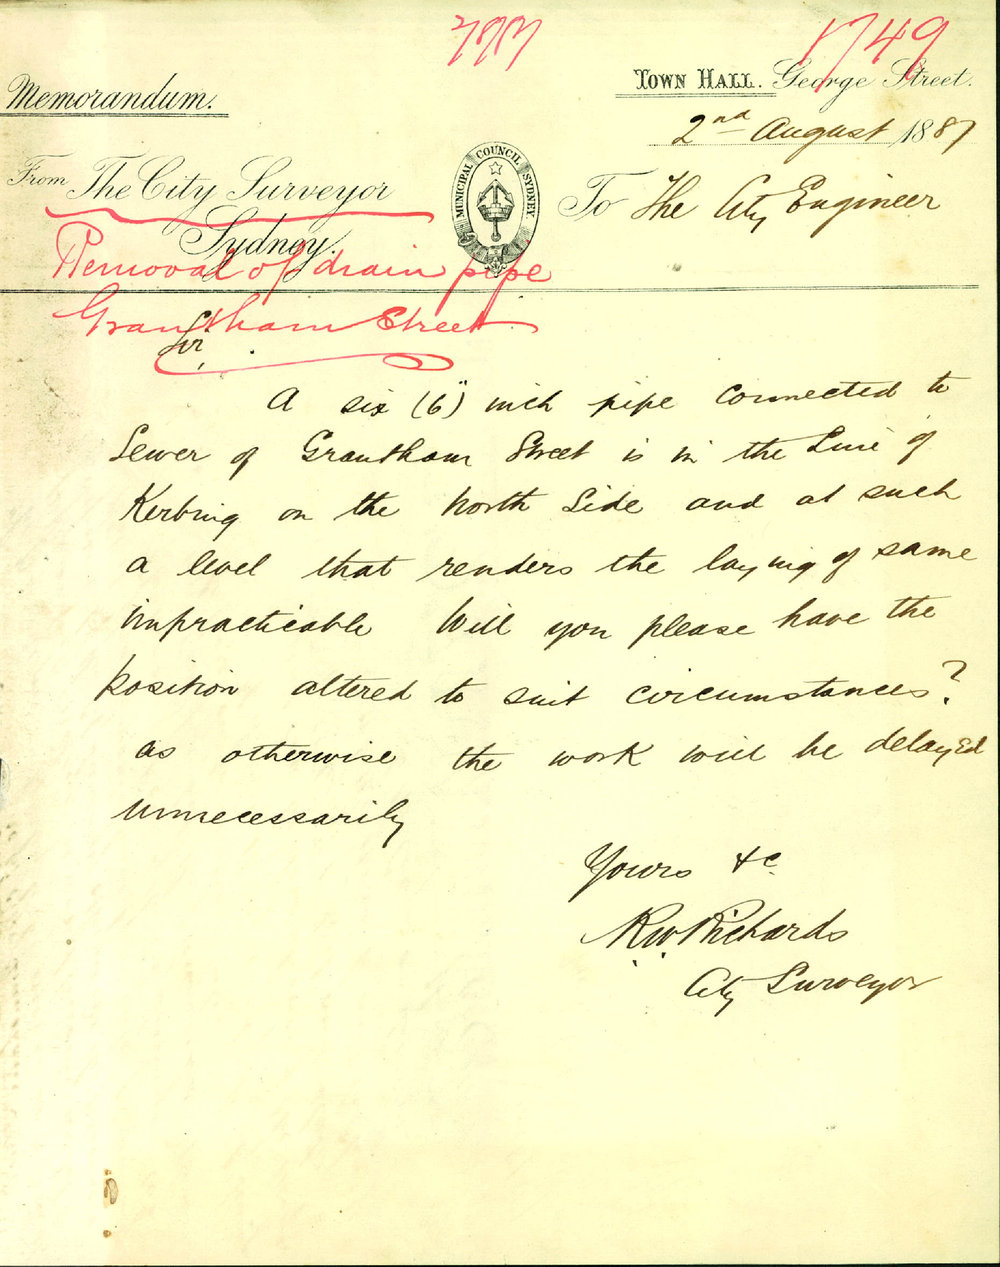 1749
Memorandum.
TOWN HALL. George Street.
2nd August 1887
From The City Surveyor
Sydney.
MUNICIPAL COUNCIL SYDNEY
To The City Engineer
Removal of drain pipe
Grantham Street
Sir,
A six (6") inch pipe connected to
Sewer of Grantham Street is in the Line of
Kerbing on the North Side and at such
a level that renders the laying of same
impracticable Will you please have the
position altered to suit circumstances?
as otherwise the work will be delayed
unnecessarily
Yours &c
R.W. Richards
City Surveyor